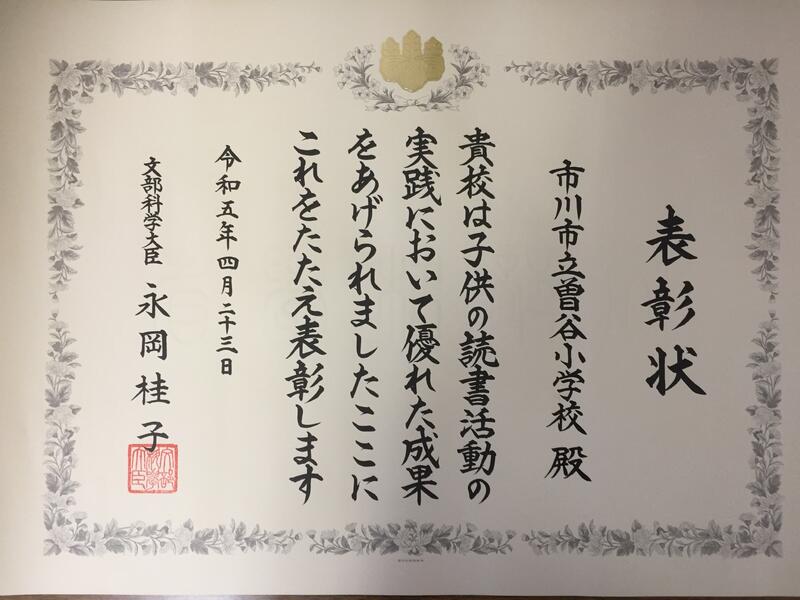 表彰状
市川市立曽谷小学校 殿
貴校は子供の読書活動の
実践において優れた成果
をあげられましたここに
これをたたえ表彰します
令和五年四月二十三日
文部科学大臣 永岡桂子